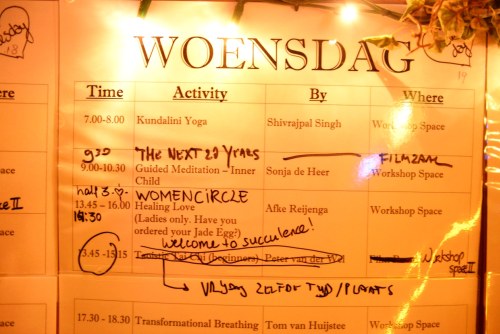 WOENSDAG
Time Activity By Where
7.00-8.00 Kundalini Yoga Shivrajpal Singh Workshop Space
THE NEXT 20 YEARS FILMZAAL
9.00-10.30 Guided Meditation – Inner Child Sonja de Heer Workshop Space
half 3
WOMENCIRCLE
13.45 – 16.00 Healing Love Afke Reijenga Workshop Space
(Ladies only. Have you
ordered your Jade Egg?)
Welcome to succulence!
13.45 -15.15 Taoistic Tai Chi (beginners) Peter van der Wal Workshop space II
VRIJDAG ZELFDE TIJD/PLAATS
17.30 - 18.30 Transformational Breathing Tom van Huijstee